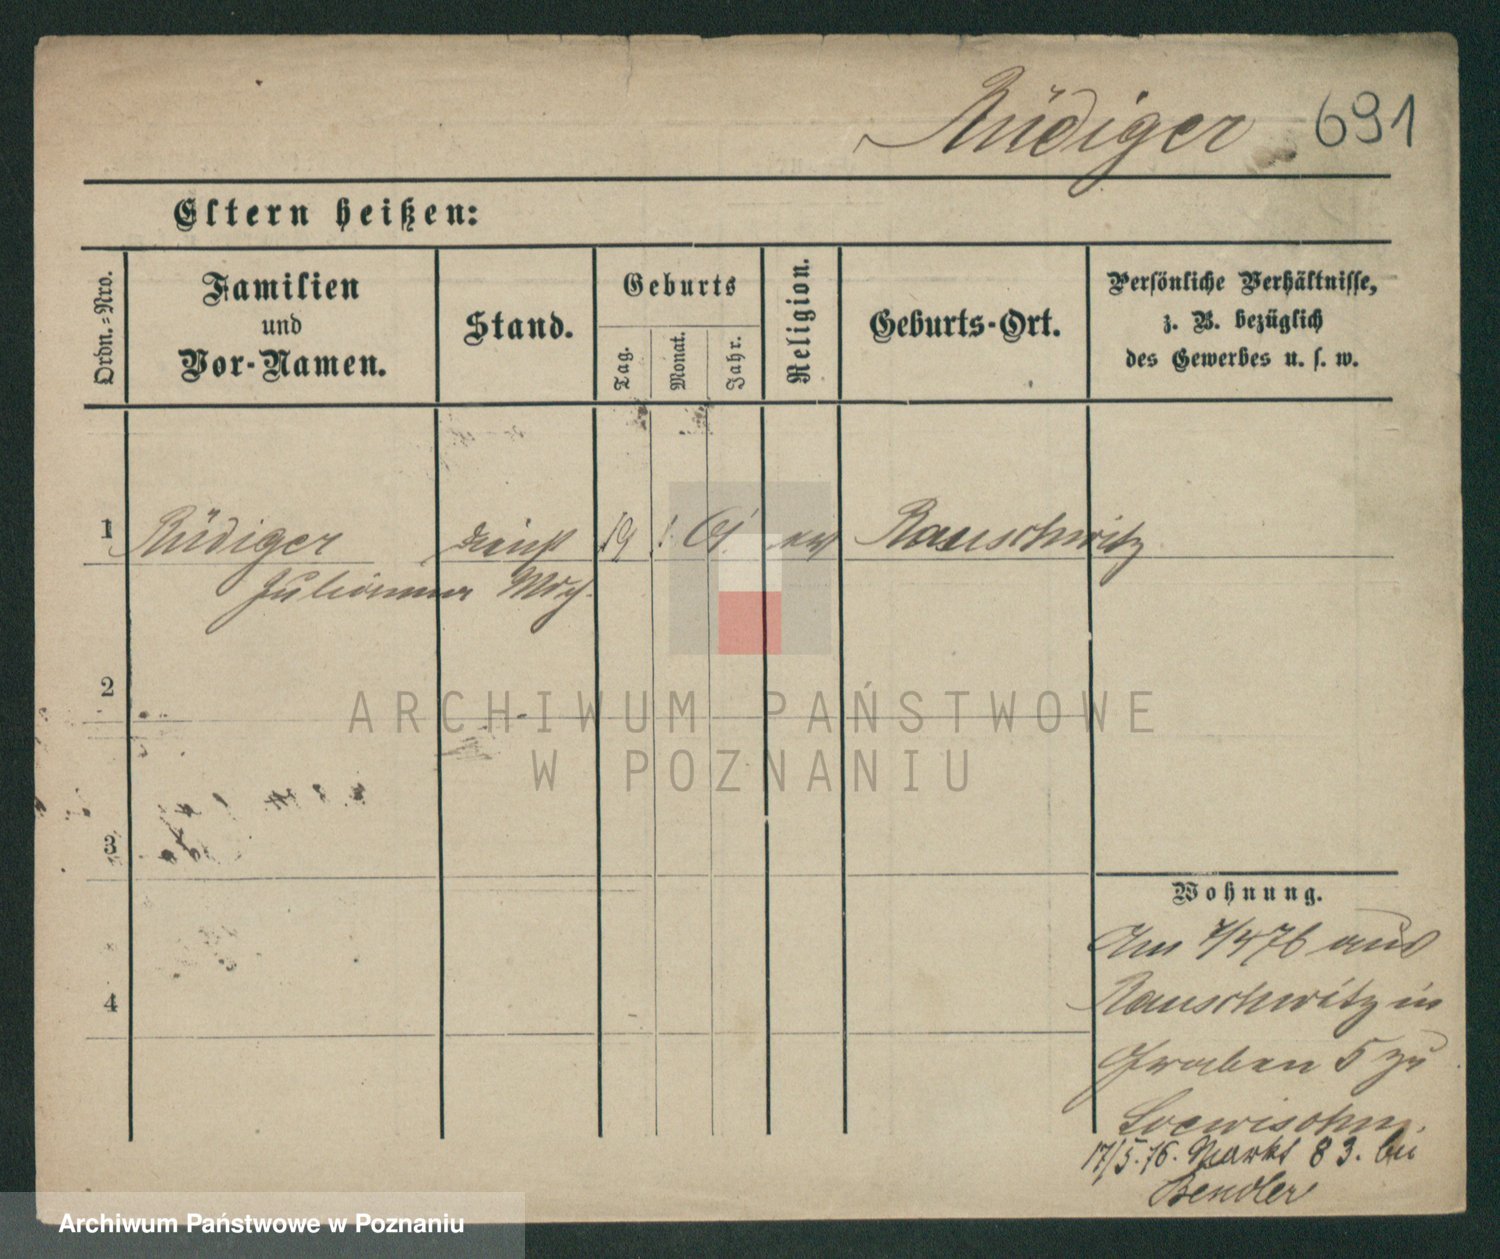 Rüdiger 691
Eltern heißen:
Ordn.-Nro.
Familien
und
Vor-Namen.
Stand.
Geburts
Tag.
Monat.
Jahr.
Religion.
Geburts-Ort.
Persönliche Verhältnisse,
z. B. bezüglich
des Gewerbes u. s. w.
1 Rüdiger Dienst 19 1 61 ev Rauschwitz
Julianna
2
3
4
Wohnung.
Am 7/4 76 aus
Rauschwitz in
Graben 5 zu
Loewisohn.
17/5.76. Markt 83. bei
Bendler
ARCHIWUM PAŃSTWOWE
W POZNANIU
Archiwum Państwowe w Poznaniu